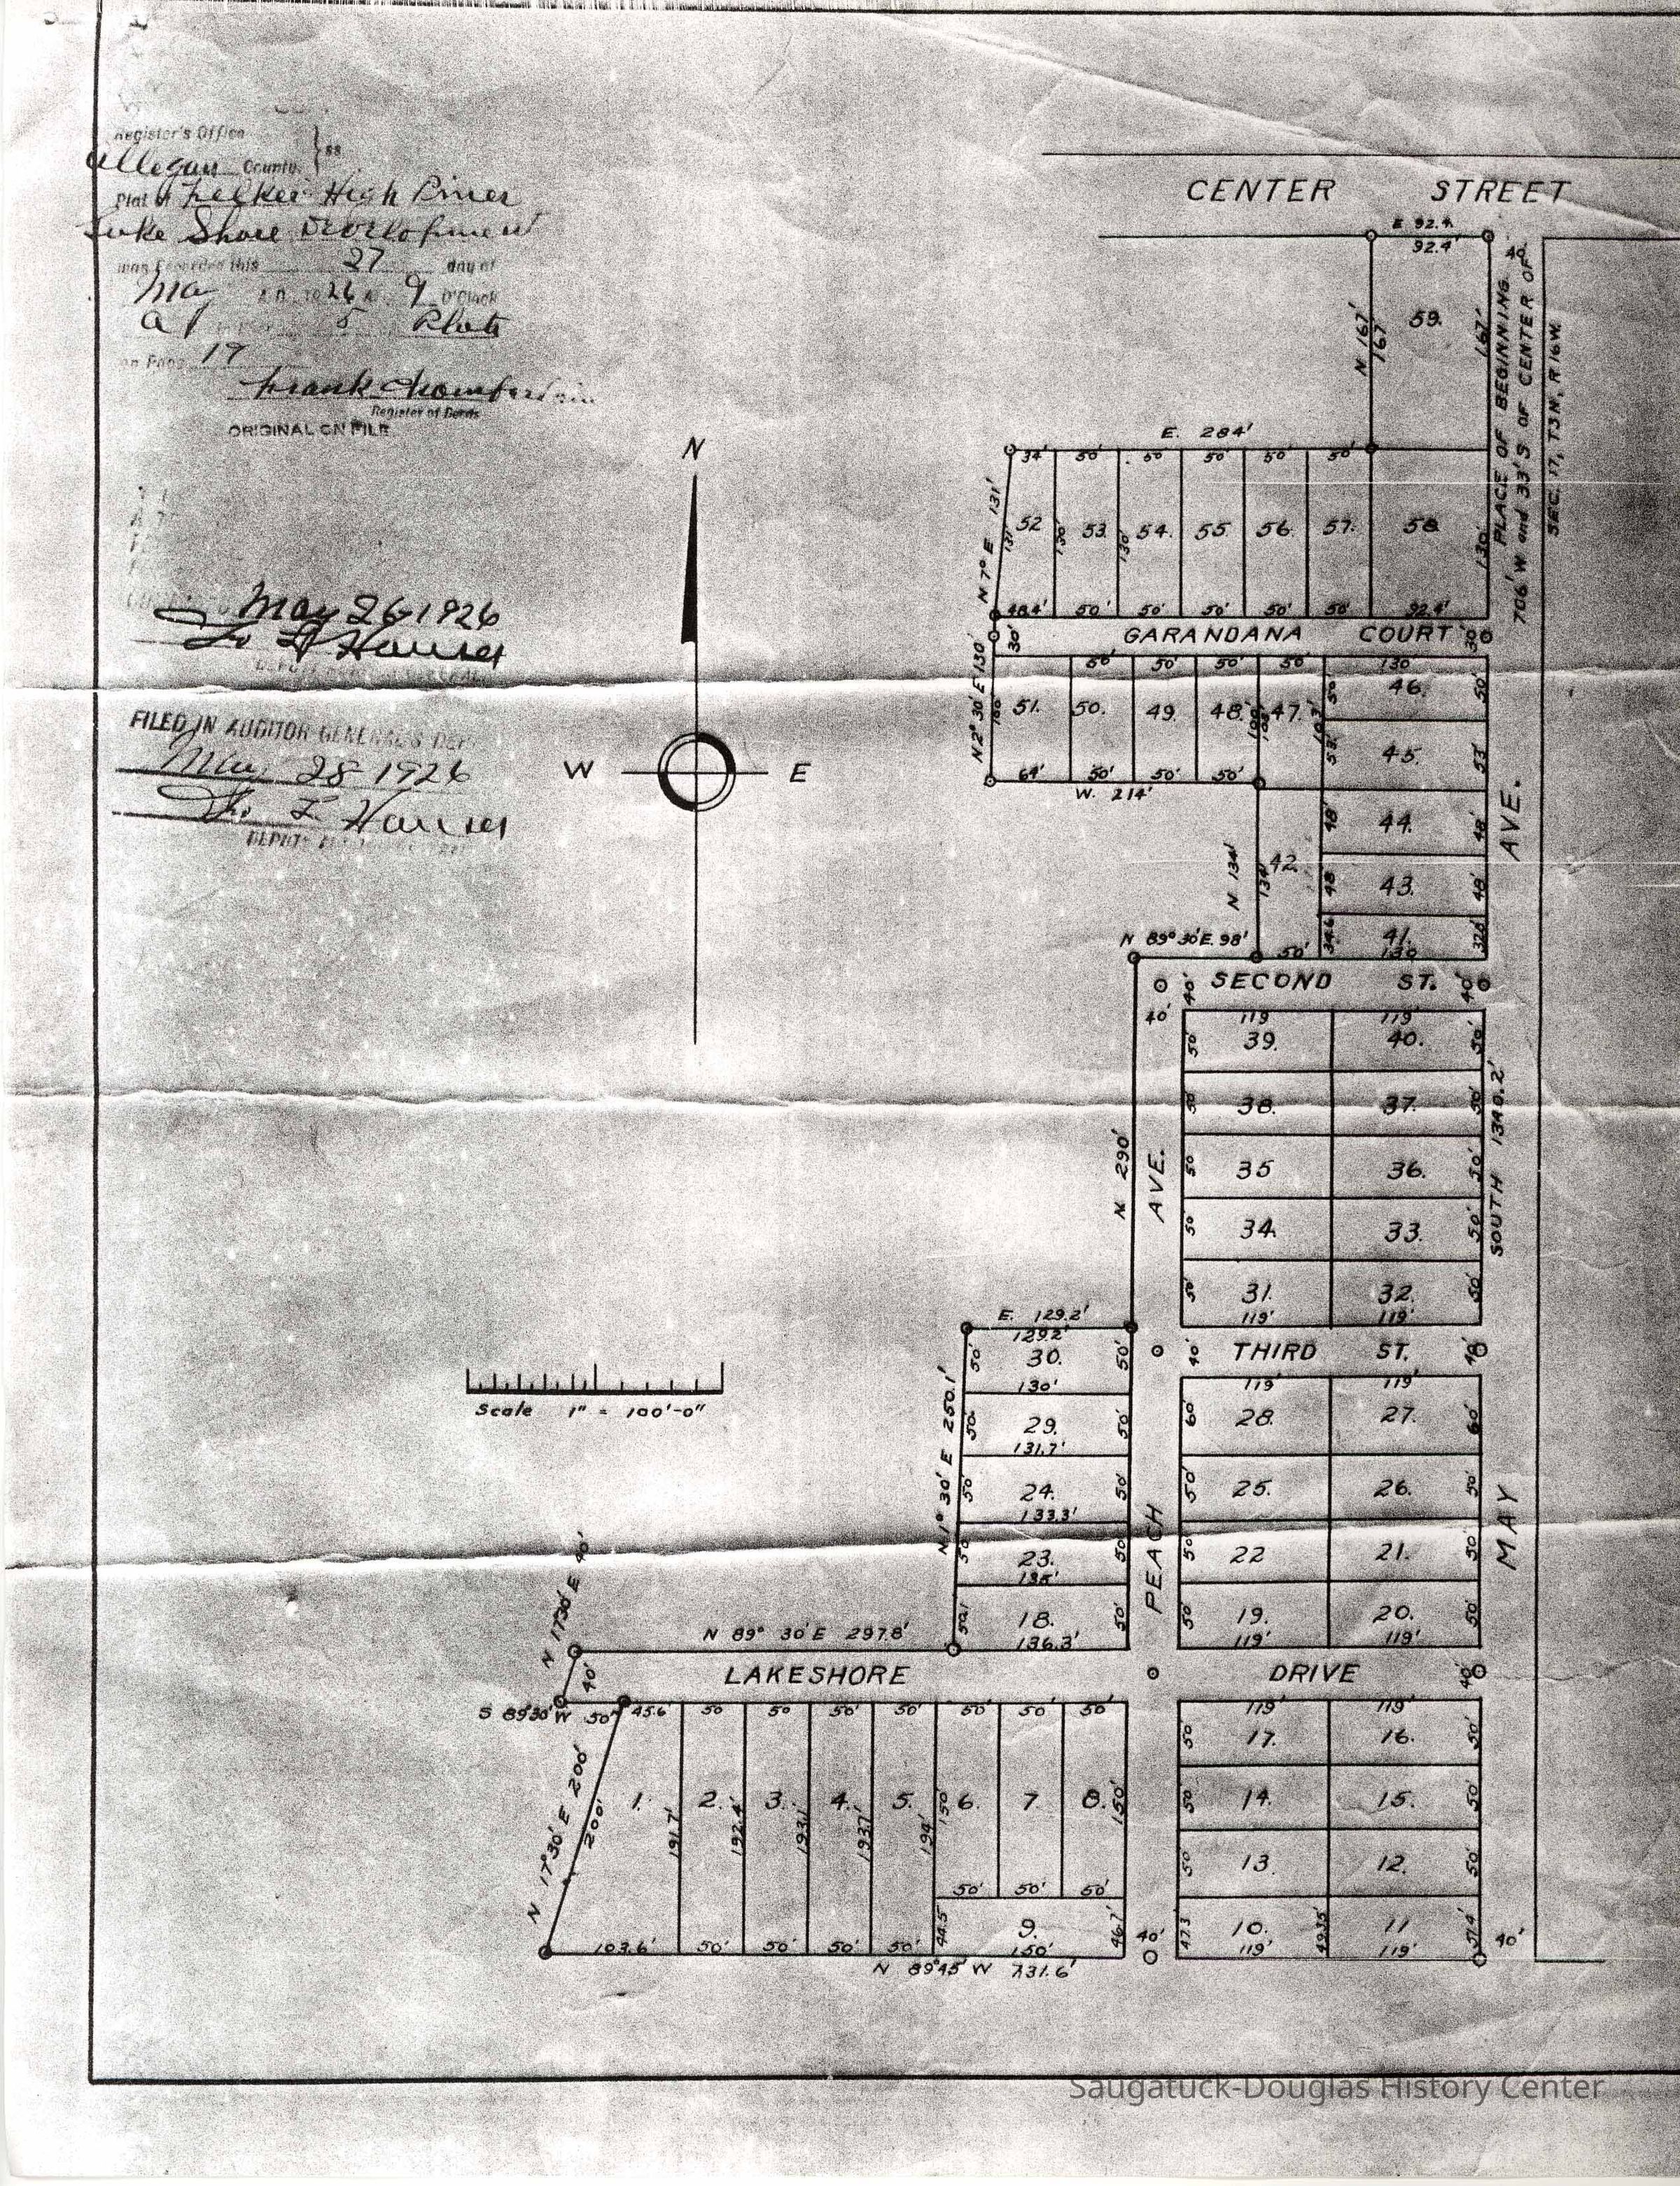 Register's Office
Allegan County. } ss
Plat of Felker High Pines
Lake Shore Development
was Recorded this 27 day of
May A.D. 1926 at 9 O'Clock
A 5 Plats
on Page 17
Frank Chamberlain
Register of Deeds
ORIGINAL ON FILE
May 26 1926
FILED IN AUDITOR GENERAL'S DEPT
May 28 1926
DEPUTY
N
W
E
Scale 1" = 100'-0"
CENTER STREET
E 92.4
92.4'
40'
N 167'
167
59.
167'
PLACE OF BEGINNING
706' W and 33' S OF CENTER OF
SEC. 17, T3N, R16W.
E. 284'
34' 50' 50' 50' 50' 50'
N 7° E 131'
131'
52
130'
53.
130'
54.
55
56.
57.
58.
130'
48.4' 50' 50' 50' 50' 50' 92.4'
30'
GARANDANA COURT
30'
50' 50' 50' 50' 130'
N 2° 30' E 130'
100'
51.
50.
49.
48.
100'
103'
47.
103'
50'
46.
50'
53'
45.
53'
64' 50' 50' 50'
W. 214'
48'
44.
48'
N 134'
134'
42.
48
43.
48'
34.6
41.
130
32.8'
N 89° 30' E. 98'
50'
AVE.
40'
SECOND ST.
40'
40'
119' 119'
50'
39.
40.
50'
50'
38.
37.
50'
50
35
36.
50'
50
34.
33.
50'
50'
31.
32.
50'
119' 119'
N 290'
AVE.
SOUTH 1340.2'
E. 129.2'
129.2'
50'
30.
50'
130'
50'
29.
50'
131.7'
50'
24.
50'
133.3'
50'
23.
50'
135'
50.1
18.
50'
136.3'
N 1° 30' E 250.1'
40'
THIRD ST.
40'
119' 119'
60'
28.
27.
60'
50'
25.
26.
50'
50'
22
21.
50'
50'
19.
20.
50'
119' 119'
PEACH
MAY
N 17°30' E 40'
N 89° 30' E 297.8'
40'
LAKESHORE DRIVE
40'
S 89°30' W 50'
45.6' 50 50 50' 50' 50' 50' 50'
N 17°30' E 200'
200'
1.
191.7'
2.
192.4'
3.
193.1'
4.
193.7'
5.
194'
150'
6.
7.
8.
150'
50' 50' 50'
44.5
9.
46.7'
103.6' 50' 50' 50' 50' 150'
N 89°45' W 731.6'
40'
119' 119'
50'
17.
16.
50'
50'
14.
15.
50'
50
13.
12.
50'
47.3
10.
49.35'
11
51.4'
119' 119'
40'
Saugatuck-Douglas History Center